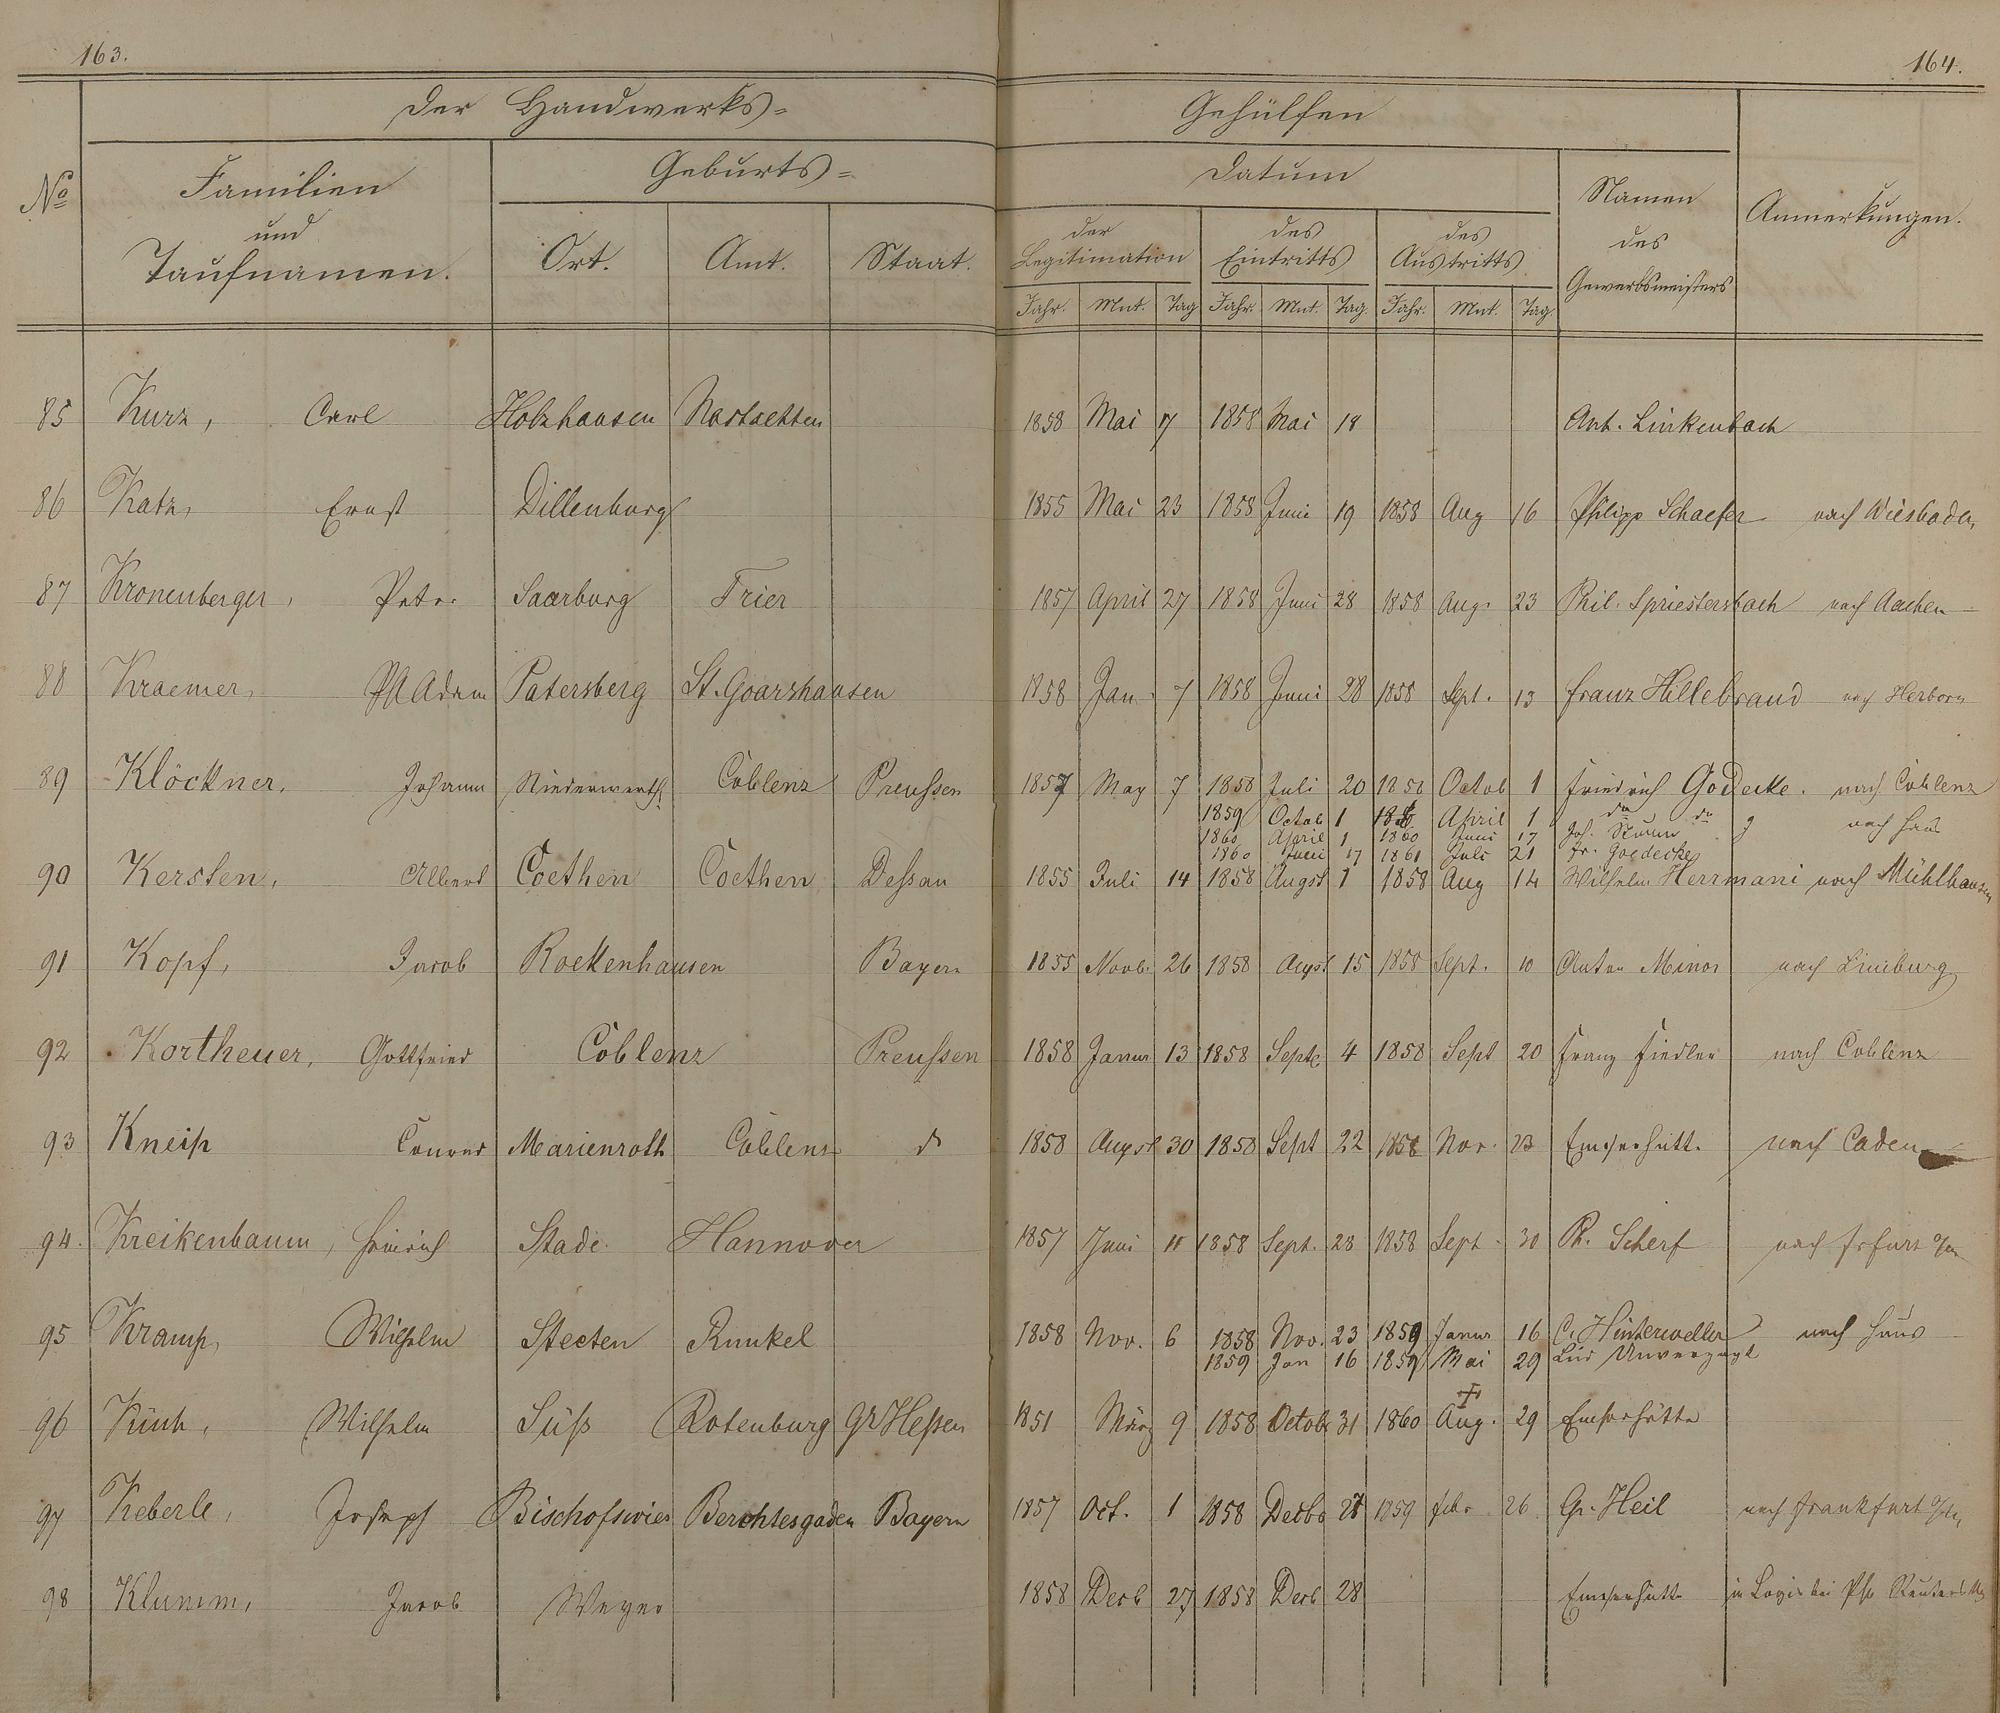 163.
164.
Der Handwerks=
Gehülfen
No
Familien
und
Taufnamen.
Geburts=
Ort.
Amt.
Staat.
Datum
der
Legitimation
des
Eintritts
des
Austritts
Namen
des
Gewerbsmeisters
Anmerkungen.
Jahr. Mnt. Tag Jahr. Mnt. Tag. Jahr. Mnt. Tag
85 Kurz, Carl Holzhausen Nastaetten 1858 Mai 17 1858 Mai 18 Ant. Linkenbach
86 Katz, Ernst Dillenburg 1855 Mai 23 1858 Juni 19 1858 Aug 16 Philipp Schaefer nach Wiesbaden
87 Kronenberger, Peter Saarburg Trier 1857 April 27 1858 Juni 28 1858 Aug. 23 Phil. Spriestersbach nach Aachen
88 Kraemer, Ph Adam Patersberg St. Goarshausen 1858 Jan 7 1858 Juni 28 1858 Sept. 13 Franz Hillebrand nach Herborn
89 Klöckner, Johann Niederwerth Coblenz Preußen 1857 May 7 1858 Juli 20 1858 Octob 1 Friedrich Godecke. nach Coblenz
1859 Octob 1 April 1 do do nach Haus
1860 April 1 1860 Juni 17 Joh.
1860 Juni 17 1861 Juli 21 Fr. Goedecke
90 Kersten, Albert Coethen Coethen Deßau 1855 Juli 14 1858 Augst 1 1858 Aug 14 Wilhelm Herrmani nach Mühlhausen
91 Kopf, Jacob Rockenhausen Bayern 1855 Novb. 26 1858 Augst 15 1858 Sept. 10 Anton Minor nach Limburg
92 Kortheuer, Gottfried Coblenz Preußen 1858 Janur 13 1858 Septb 4 1858 Sept 20 Franz Fiedler nach Coblenz
93 Kneip Conrad Marienroth Coblenz d 1858 Augst 30 1858 Sept 22 1858 Nov. 23 Emserhütte nach Caden
94. Kreikenbaum, Heinrich Stade Hannover 1857 Juni 11 1858 Sept. 28 1858 Sept. 30 Ph. Scherf nach
95 Kramp, Wilhelm Steeten Runkel 1858 Nov. 6 1858 Nov. 23 1859 Janur 16 C. Hinterweller nach Haus
1859 Jan 16 1859 Mai 29 Lud Unverzagt
96 Küch, Wilhelm Süß Rotenburg Gr Heßen 1851 März 9 1858 Octobr 31 1860 Aug. 29 Emserhütte
97 Keberle, Joseph Bischofswies Berchtesgaden Bayern 1857 Oct. 1 1858 Decbr 27 1859 Febr 26 Gr. Heil nach Frankfurt a/M
98 Klumm, Jacob Weyer 1858 Decb 27 1858 Decb 28 Emserhütte in Logis bei Ph.